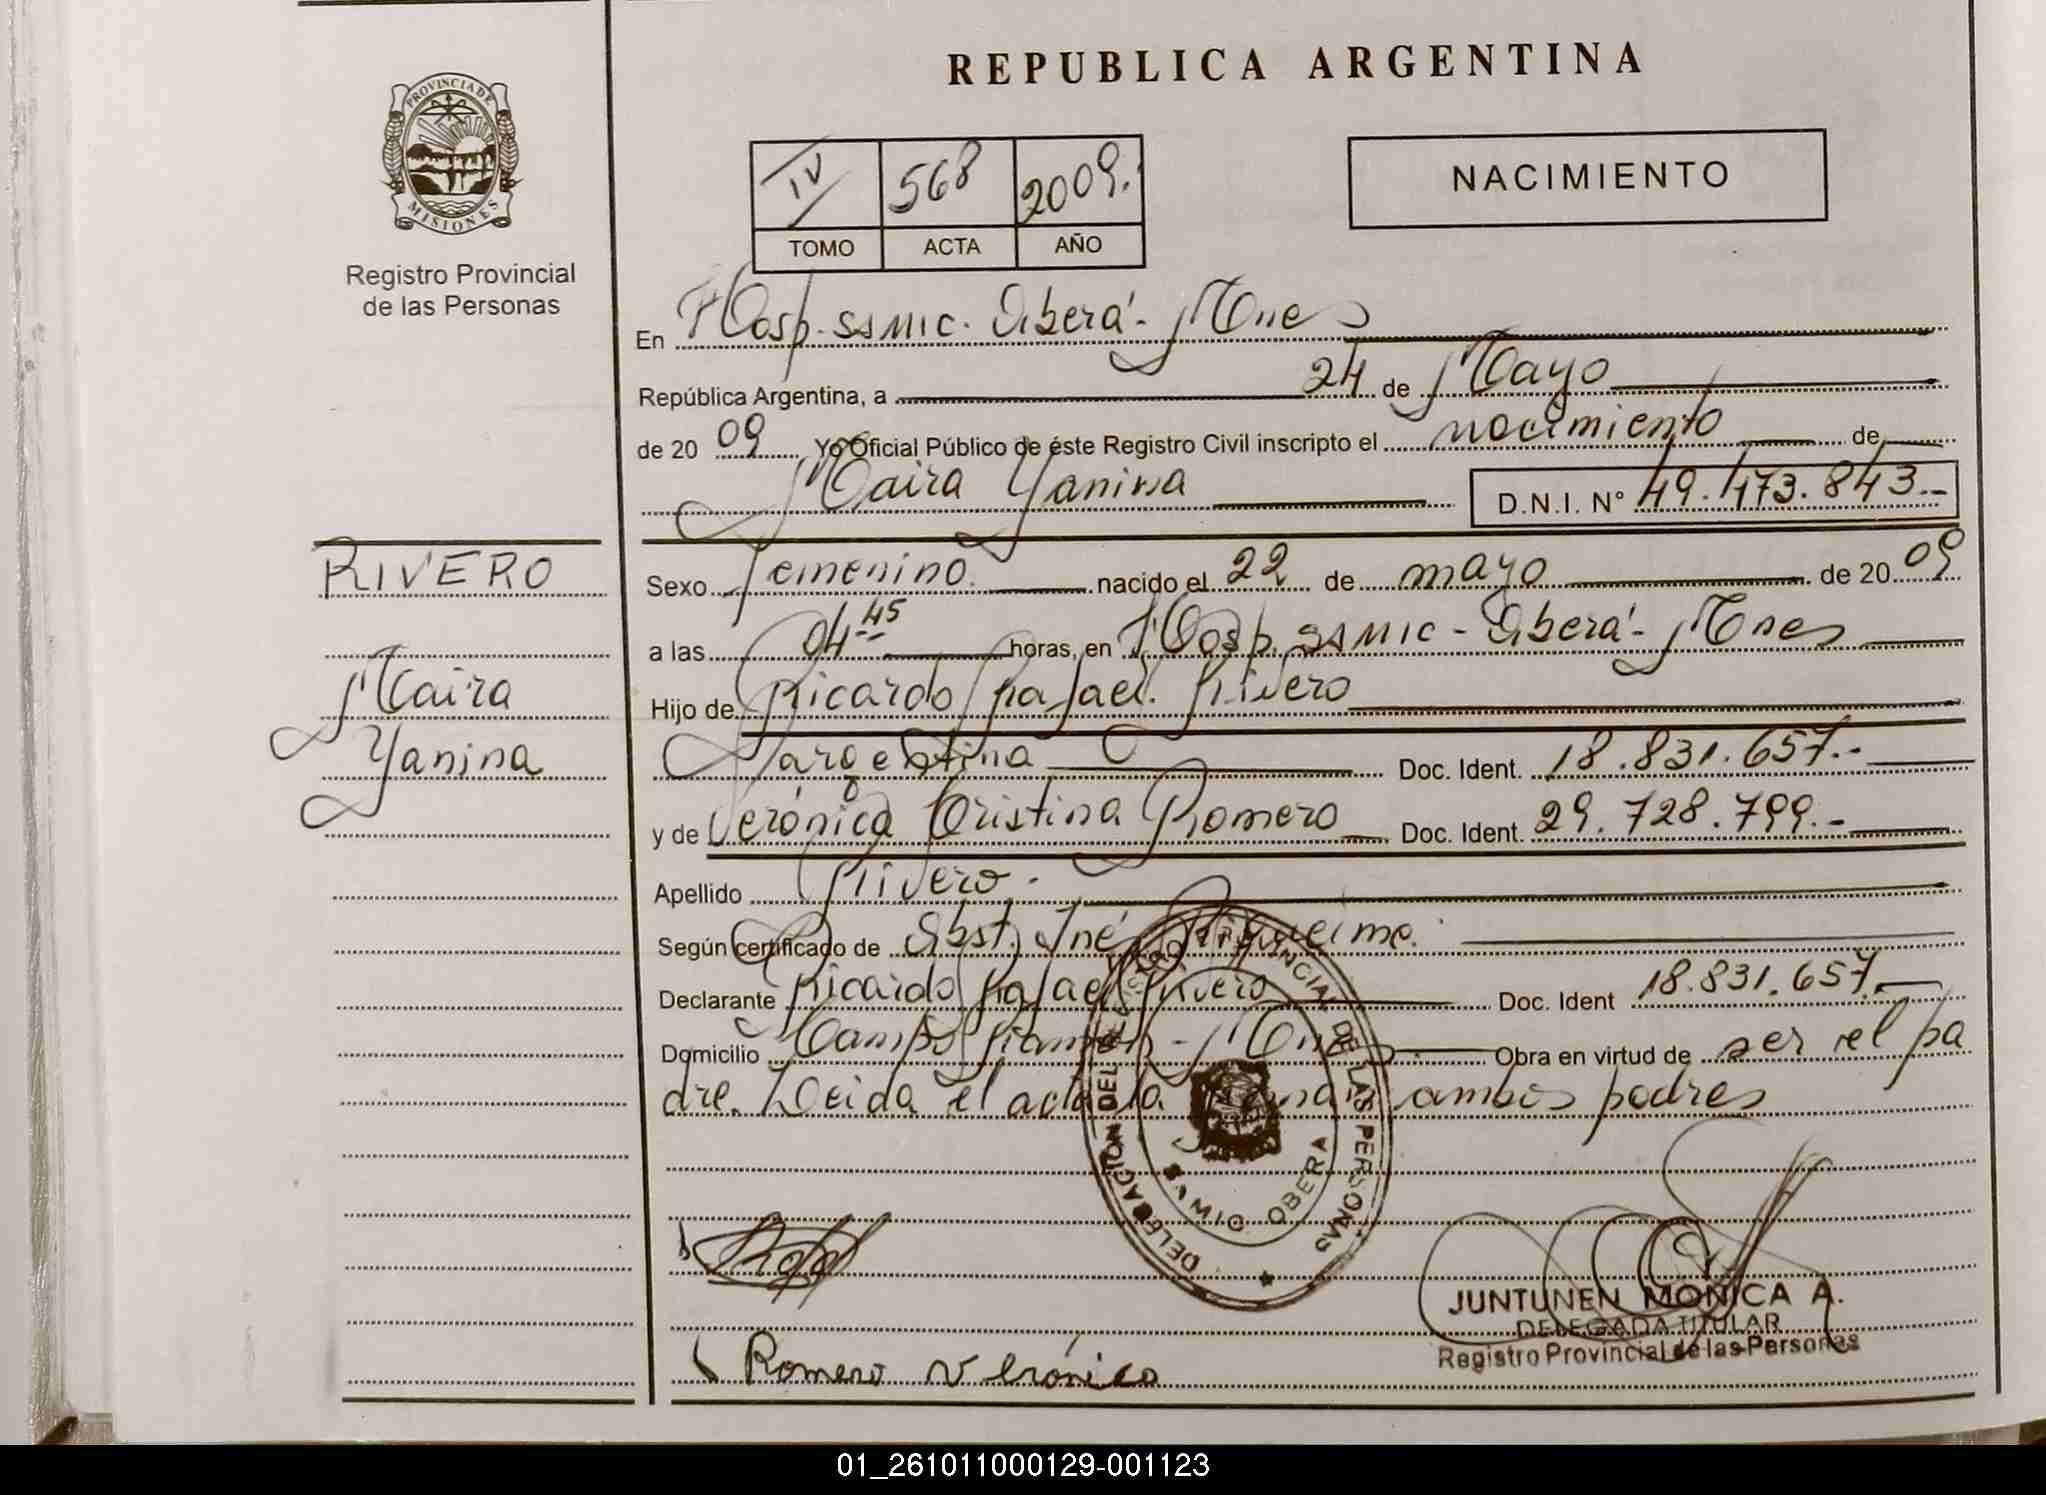 REPUBLICA ARGENTINA
PROVINCIA DE
MISIONES
Registro Provincial
de las Personas
IV 568 2009.
TOMO ACTA AÑO
NACIMIENTO
En Hosp. SAMIC. Oberá - Mnes
República Argentina, a 24 de Mayo
de 20 09 Yo Oficial Público de éste Registro Civil inscripto el nacimiento de
Maira Yanina D.N.I. Nº 49.473.843.-
RIVERO
Maira
Yanina
Sexo Femenino. nacido el 22 de mayo de 20 09
a las 04 45 horas, en Hosp. SAMIC - Oberá - Mnes
Hijo de Ricardo Rafael Rivero
argentina Doc. Ident. 18.831.657.-
y de Verónica Cristina Romero Doc. Ident. 29.728.799.-
Apellido Rivero.
Según certificado de Obst. Iné
Declarante Ricardo Rafael Rivero Doc. Ident 18.831.657.-
Domicilio Campo Ramón - Mnes. Obra en virtud de ser el pa
dre. Leida el acta la firman ambos padres
DELEGACION DEL REGISTRO PROVINCIAL DE LAS PERSONAS
OBERA
Romero Verónica
JUNTUNEN MONICA A.
DELEGADA TITULAR
Registro Provincial de las Personas
01_261011000129-001123